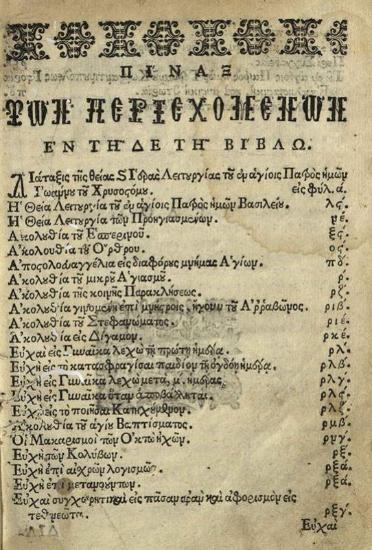 ΠΙΝΑΞ
ΤΩΝ ΠΕΡΙΕΧΟΜΕΝΩΝ
ΕΝ ΤΗΔΕ ΤΗ ΒΙΒΛΩ.
Διάταξις τῆς θείας
Ἰωάννου τοῦ Χρυσοστόμου. εἰς φύλ. α.
Ἡ Θεία Λειτουργία τοῦ ἐν ἁγίοις Πατρὸς ἡμῶν Βασιλείου. λς.
Ἡ Θεία Λειτουργία τῶν Προηγιασμένων. νε.
Ἀκολουθία τοῦ Ἑσπερινοῦ. ξς.
Ἀκολουθία τοῦ Ὄρθρου. ος.
Ἀποστολοευαγγέλια εἰς διαφόρους μνήμας Ἁγίων. πδ.
Ἀκολουθία τοῦ μικροῦ Ἁγιασμοῦ. ρ.
Ἀκολουθία τῆς κοινῆς Παρακλήσεως. ρζ.
Ἀκολουθία γινομένη ἐπὶ μνήστροις, ἤγουν τοῦ Ἀῤῥαβῶνος. ριβ.
Ἀκολουθία τοῦ Στεφανώματος. ριε.
Ἀκολουθία εἰς Δίγαμον. ρκε.
Εὐχαὶ εἰς Γυναῖκα λεχὼ τῇ πρώτῃ ἡμέρᾳ. ρλ.
Εὐχὴ εἰς τὸ κατασφραγίσαι παιδίον τῇ ὀγδόῃ ἡμέρᾳ. ρλβ.
Εὐχὴ εἰς Γυναῖκα λεχὼ μετὰ μ. ἡμέρας. ρλγ.
Εὐχὴ εἰς Γυναῖκα ὅταν ἀποβάλεται. ρλς.
Εὐχὴ εἰς τὸ ποιῆσαι Κατηχούμενον. ρλζ.
Ἀκολουθία τοῦ ἁγίου Βαπτίσματος. ρμβ.
Οἱ Μακαρισμοὶ τῶν Ὀκτωήχων. ρνγ.
Εὐχὴ τῶν Κολύβων. ρξ.
Εὐχὴ ἐπὶ αἰσχρῶν λογισμῶν. ρξα.
Εὐχὴ ἐπὶ μετανοούντων. ρξα.
Εὐχαὶ συγχωρητικαὶ εἰς πᾶσαν ἀρὰν καὶ ἀφορισμὸν εἰς
τεθνεῶτα. ρξγ.
Εὐχαὶ